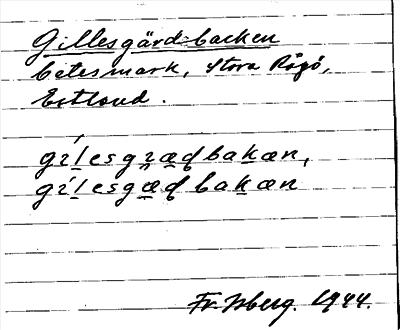 Gillesgärd-backen
betesmark, Stora Rågö,
Estland.
gílesgɪæɖbakæn,
gílesgæɖbakæn
Fr. Isberg. 1944.